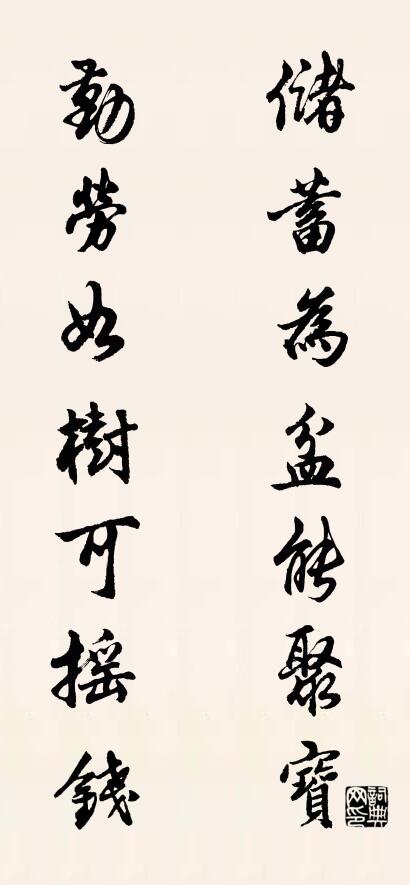 儲蓄為盆能聚寶
勤勞如樹可搖錢
詞典网印